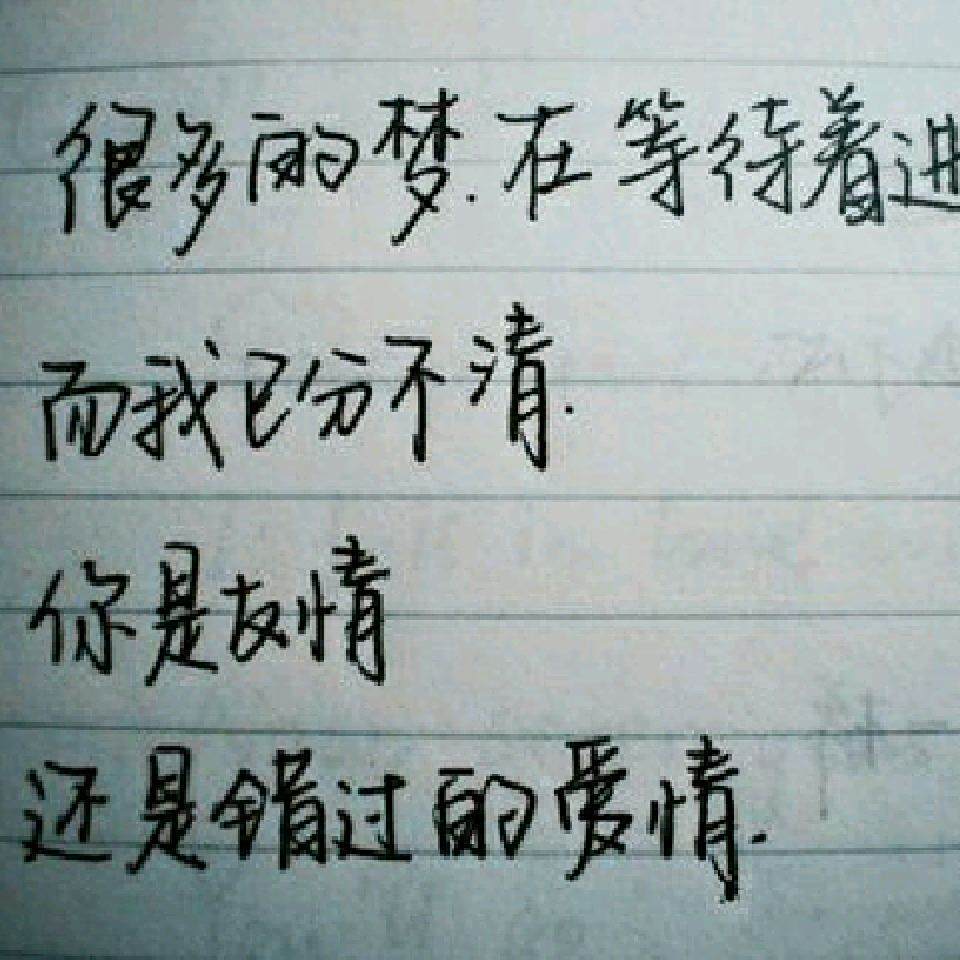 很多的梦.在等待着进
而我已分不清.
你是友情
还是错过的爱情.